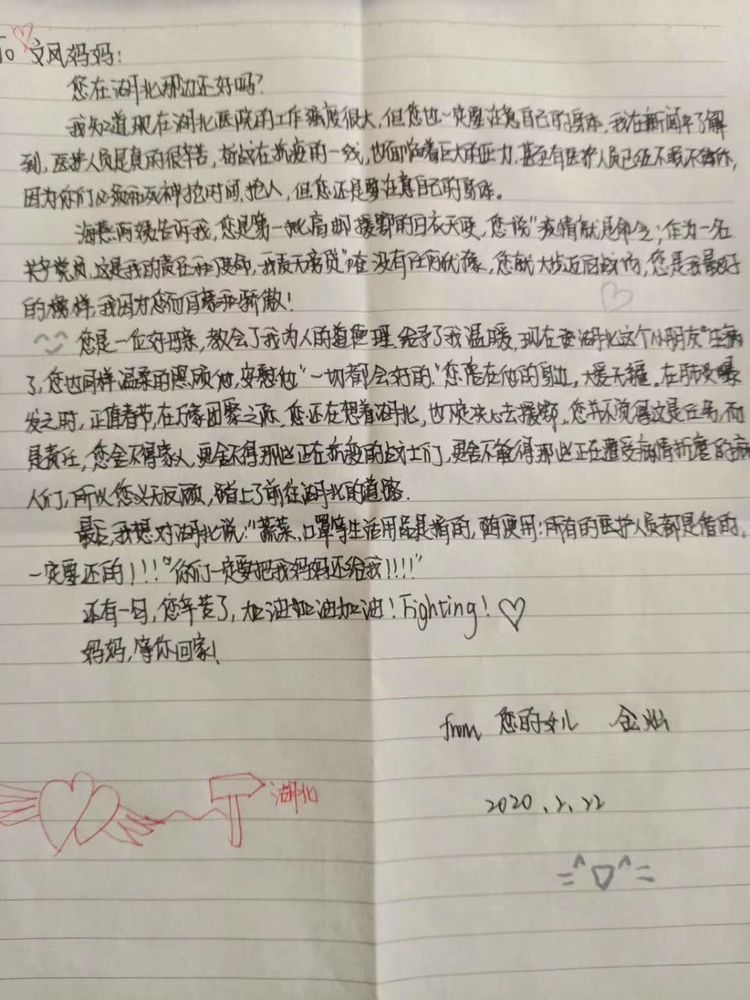 To 文凤妈妈:
您在湖北那边还好吗?
我知道现在湖北医院的工作强度很大,但您也一定要注意自己的身体,我在新闻中了解
到,医护人员是真的很辛苦,奋战在抗疫的一线,也面临着巨大的压力,甚至有医护人员已经不敢不
因为你们必须和死神抢时间,抢人,但您还是要注意自己的身体。
海燕阿姨告诉我,您是第一批肩担援鄂的白衣天使,您说"疫情就是命令;作为一名
共产党员,这是我的责任和使命,我责无旁贷"在没有任何犹豫,您就大步迈向战场,您是我最好
的榜样,我因为您而自豪和骄傲!
您是一位好母亲,教会了我为人的道理,给予了我温暖,现在要湖北这个小朋友"生病
了,您也同样温柔的照顾他,安慰他"一切都会好的."您陪在他的身边,大爱无疆。在肺炎爆
发之时,正值春节,在万家团聚之际,您还在想着湖北,也下定决心去援鄂,您并不觉得这是任务,而
是责任,您舍不得家人,更舍不得那些正在抗疫的战士们,更舍不得那些正在遭受病情折磨的病
人们,所以您义无反顾,踏上了前往湖北的道路.
最后,我想对湖北说:"蔬菜、口罩等生活用品是捐的,随便用;所有的医护人员都是借的,
一定要还的!!!"你们一定要把我妈妈还给我!!!!"
还有一句,您辛苦了,加油加油加油!Fighting!♡
妈妈,等你回家!
from 您的女儿 金灿
2020.2.22
湖北